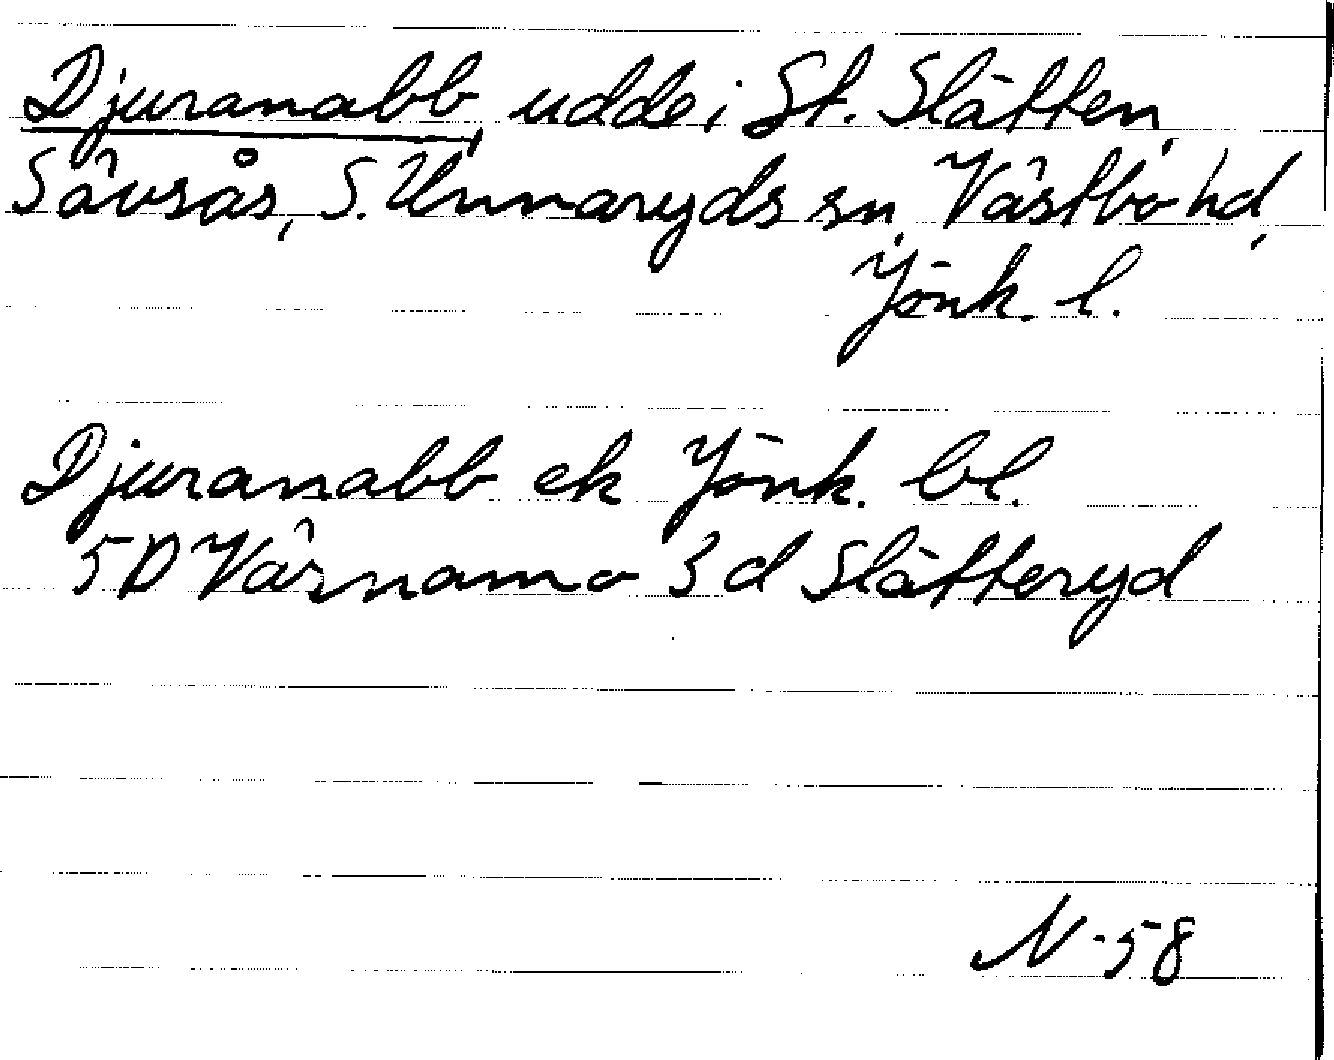 Djuranabb, udde i St. Slätten,
Sävsås, S. Unnaryds sn, Västbo hd,
Jönk. l.
Djuranabb ek Jönk. bl.
5D Värnamo 3d Slätteryd
N-58